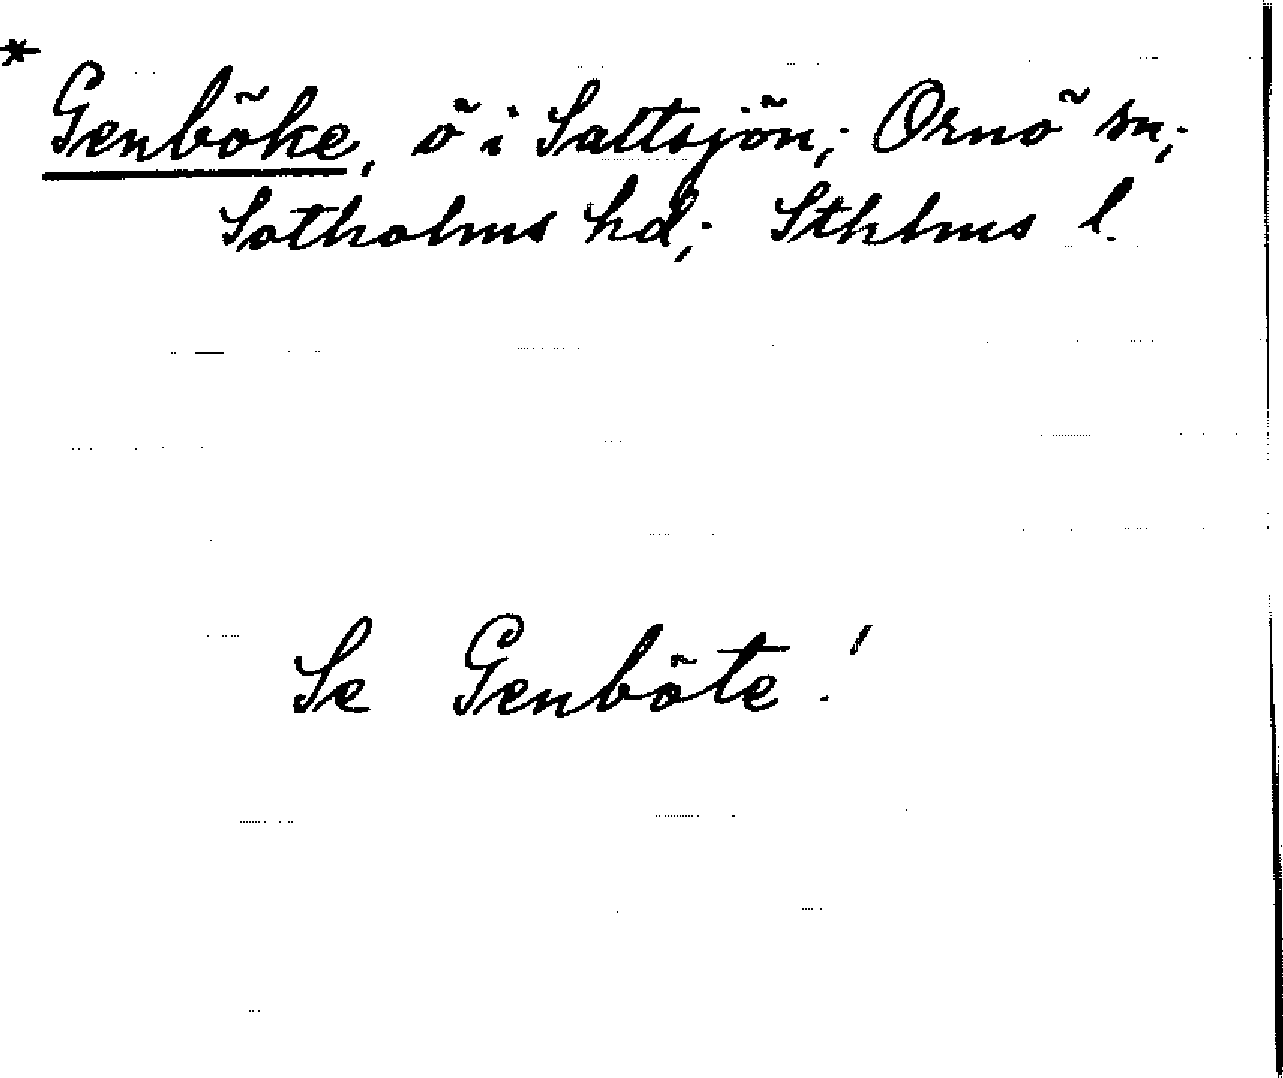 * Genböke, ö i Saltsjön; Ornö sn;
Sotholms hd; Sthlms l.
Se Genböte!